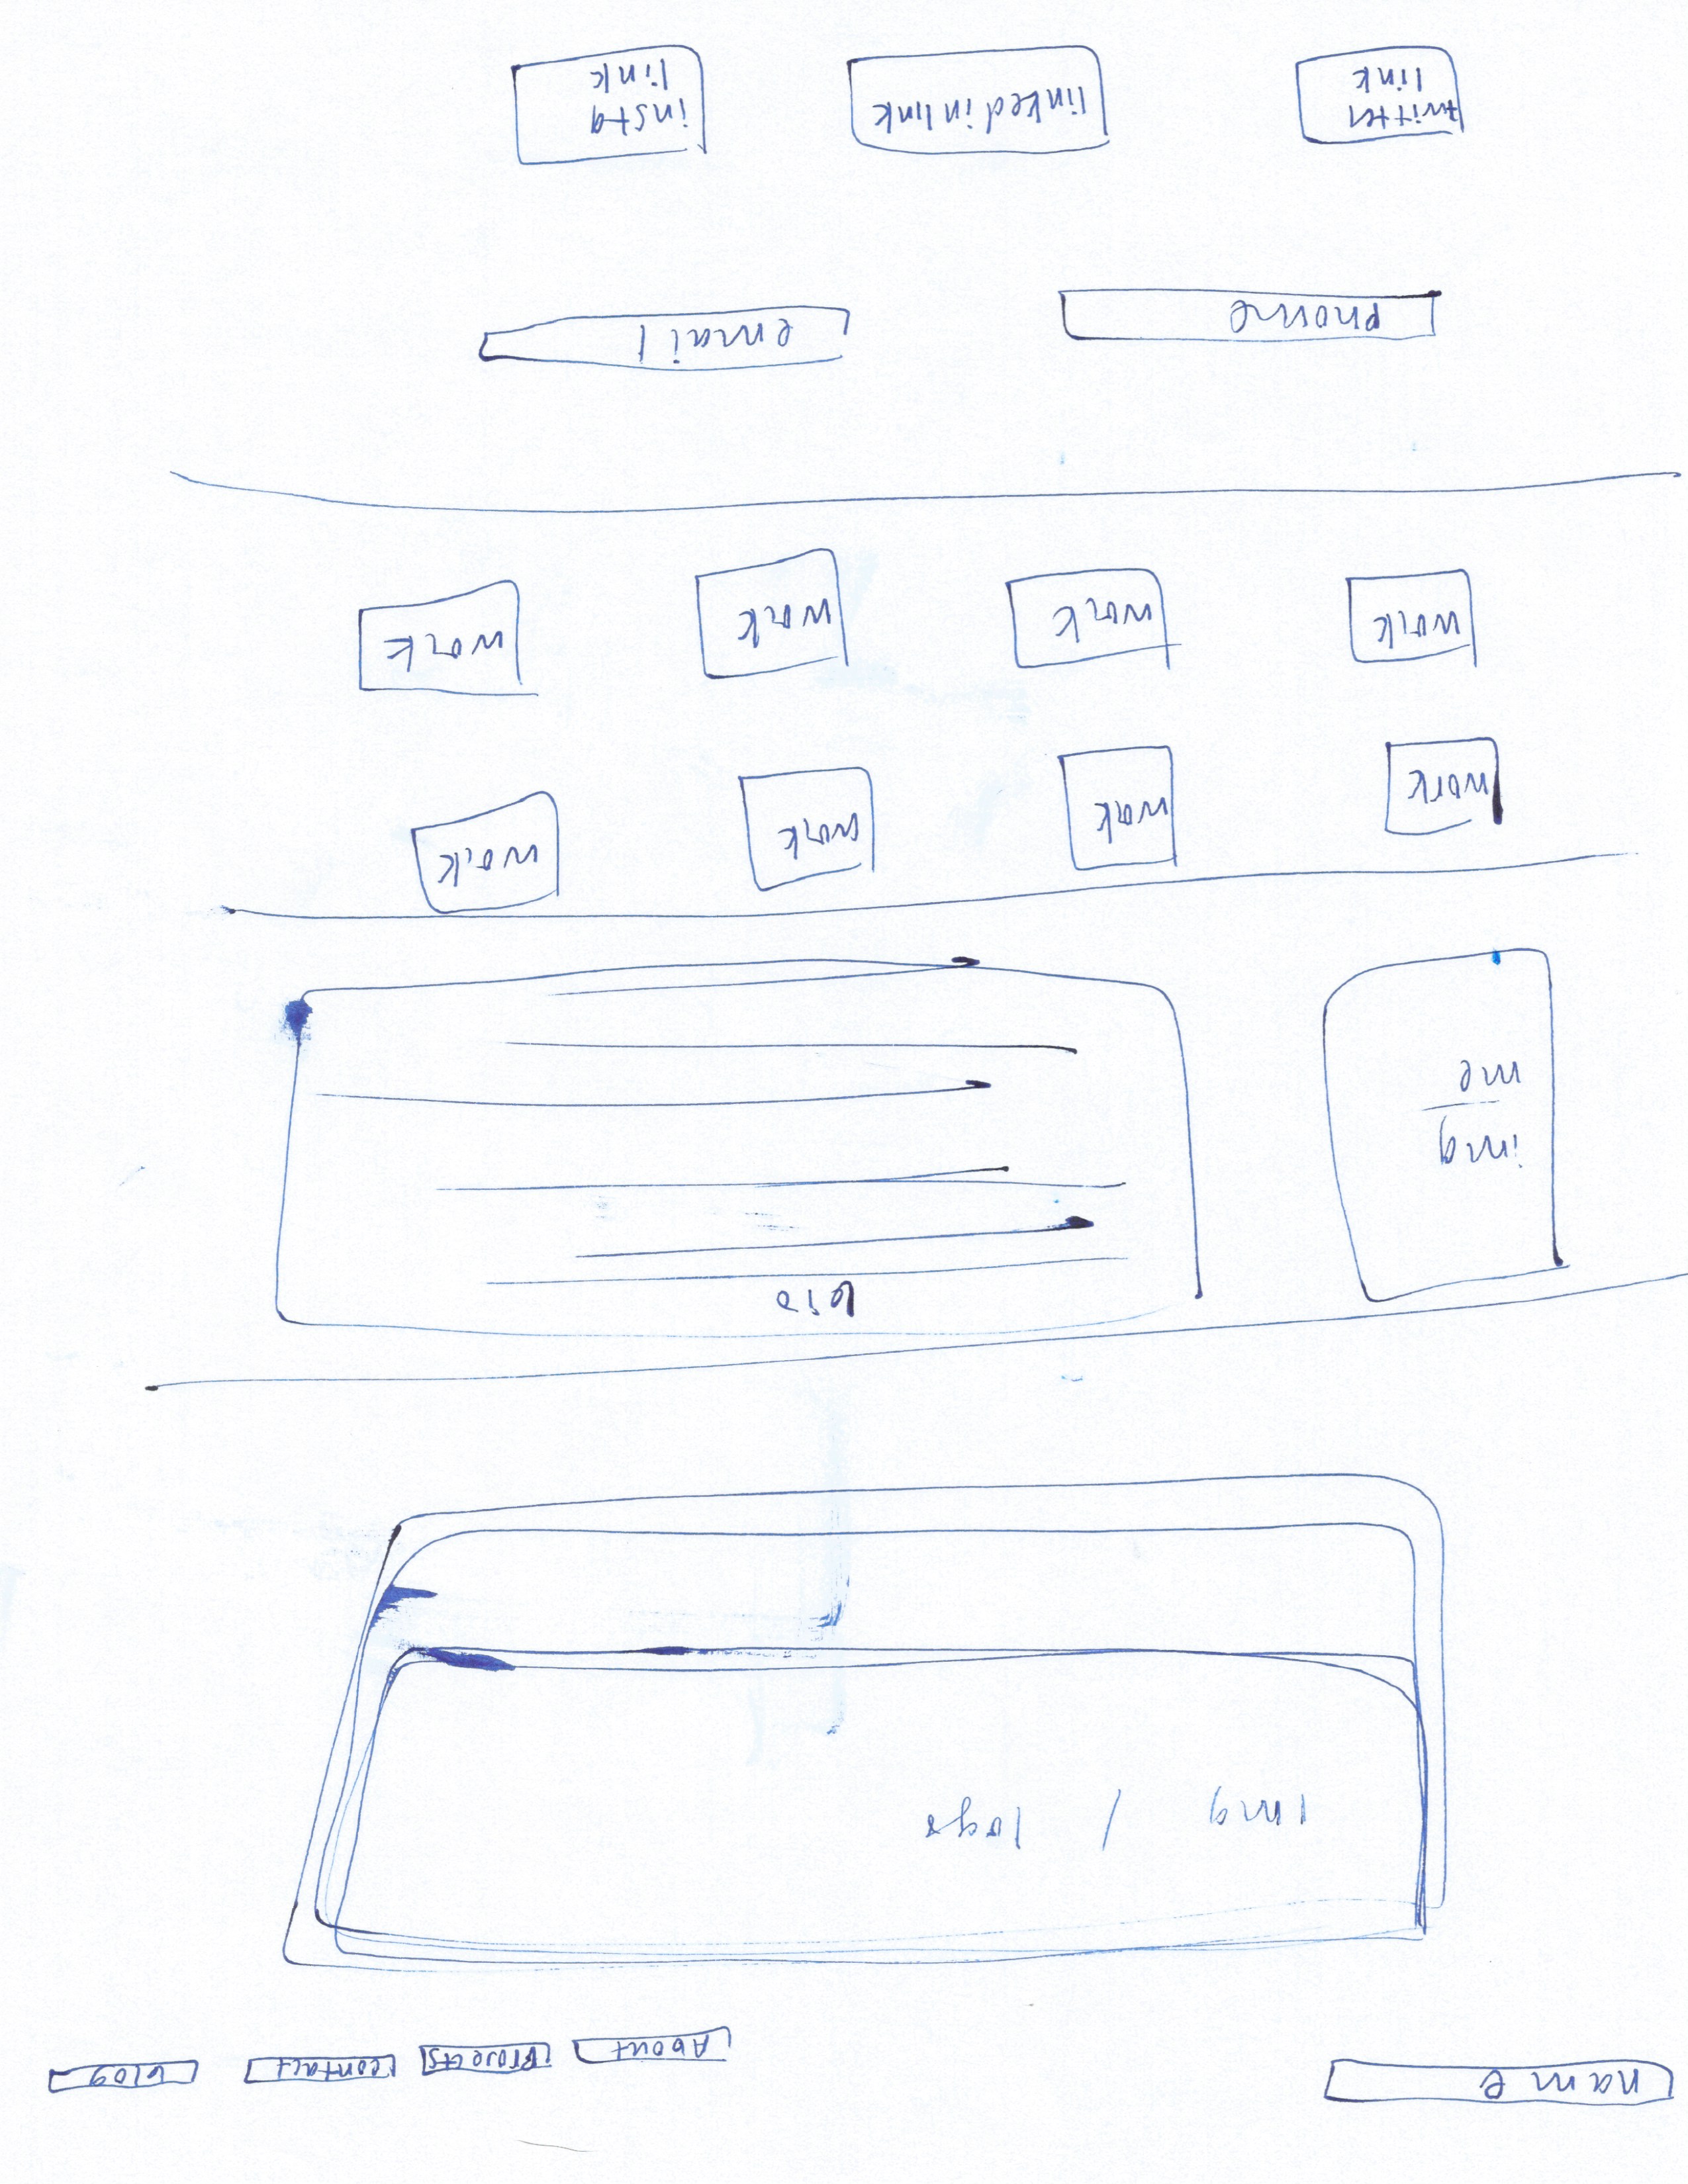 name
About
Projects
contact
blog
img / logo
img
me
bio
work
work
work
work
work
work
work
work
phone
email
twitter
link
linkedin link
insta
link